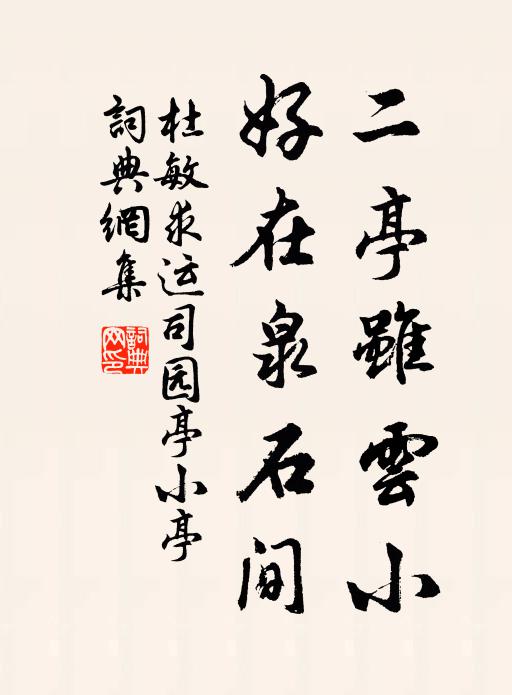 二亭雖雲小
好在泉石间
杜敏求运司园亭小亭
詞典網集
詞典网印